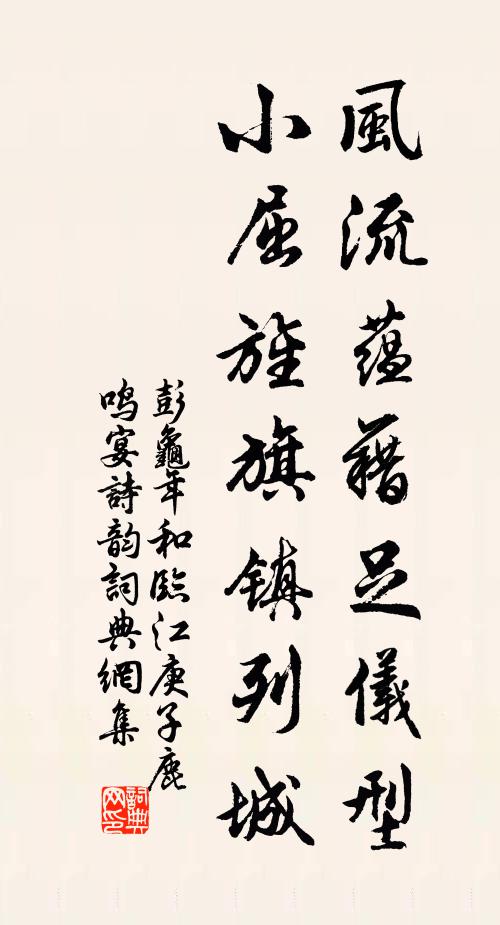 風流蘊藉足儀型
小屈旌旗镇列城
彭龜年和臨江庚子鹿
鸣宴詩韵詞典網集
詞典網印